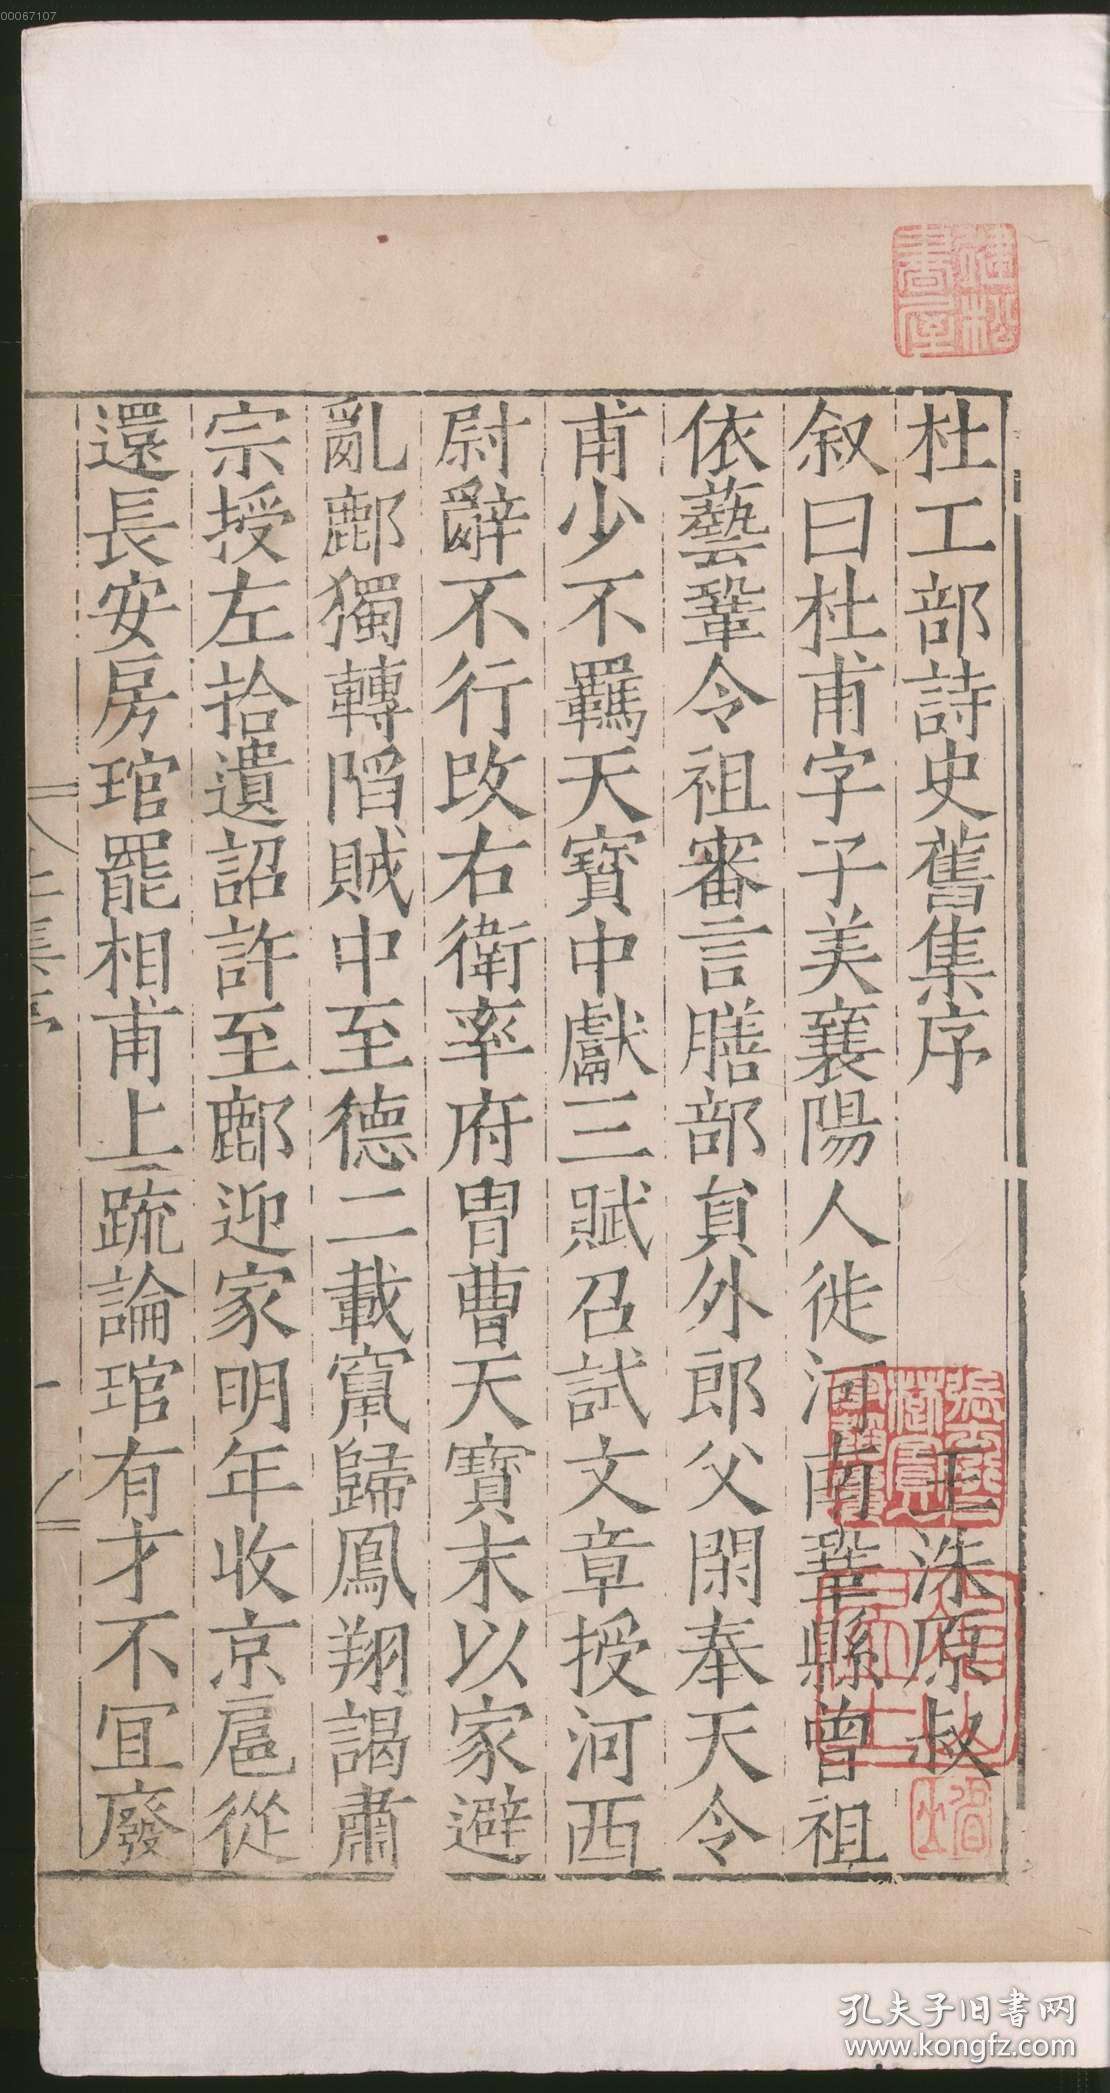 00067107
杜工部詩史舊集序
王洙原叔
叙曰杜甫字子美襄陽人徙河南鞏縣曾祖
依藝鞏令祖審言膳部貟外郎父閑奉天令
甫少不羈天寶中獻三賦召試文章授河西
尉辭不行改右衛率府胄曹天寶末以家避
亂鄜獨轉陷賊中至德二載竄歸鳳翔謁肅
宗授左拾遺詔許至鄜迎家明年收京扈從
還長安房琯罷相甫上疏論琯有才不冝廢
孔夫子旧书网
www.kongfz.com